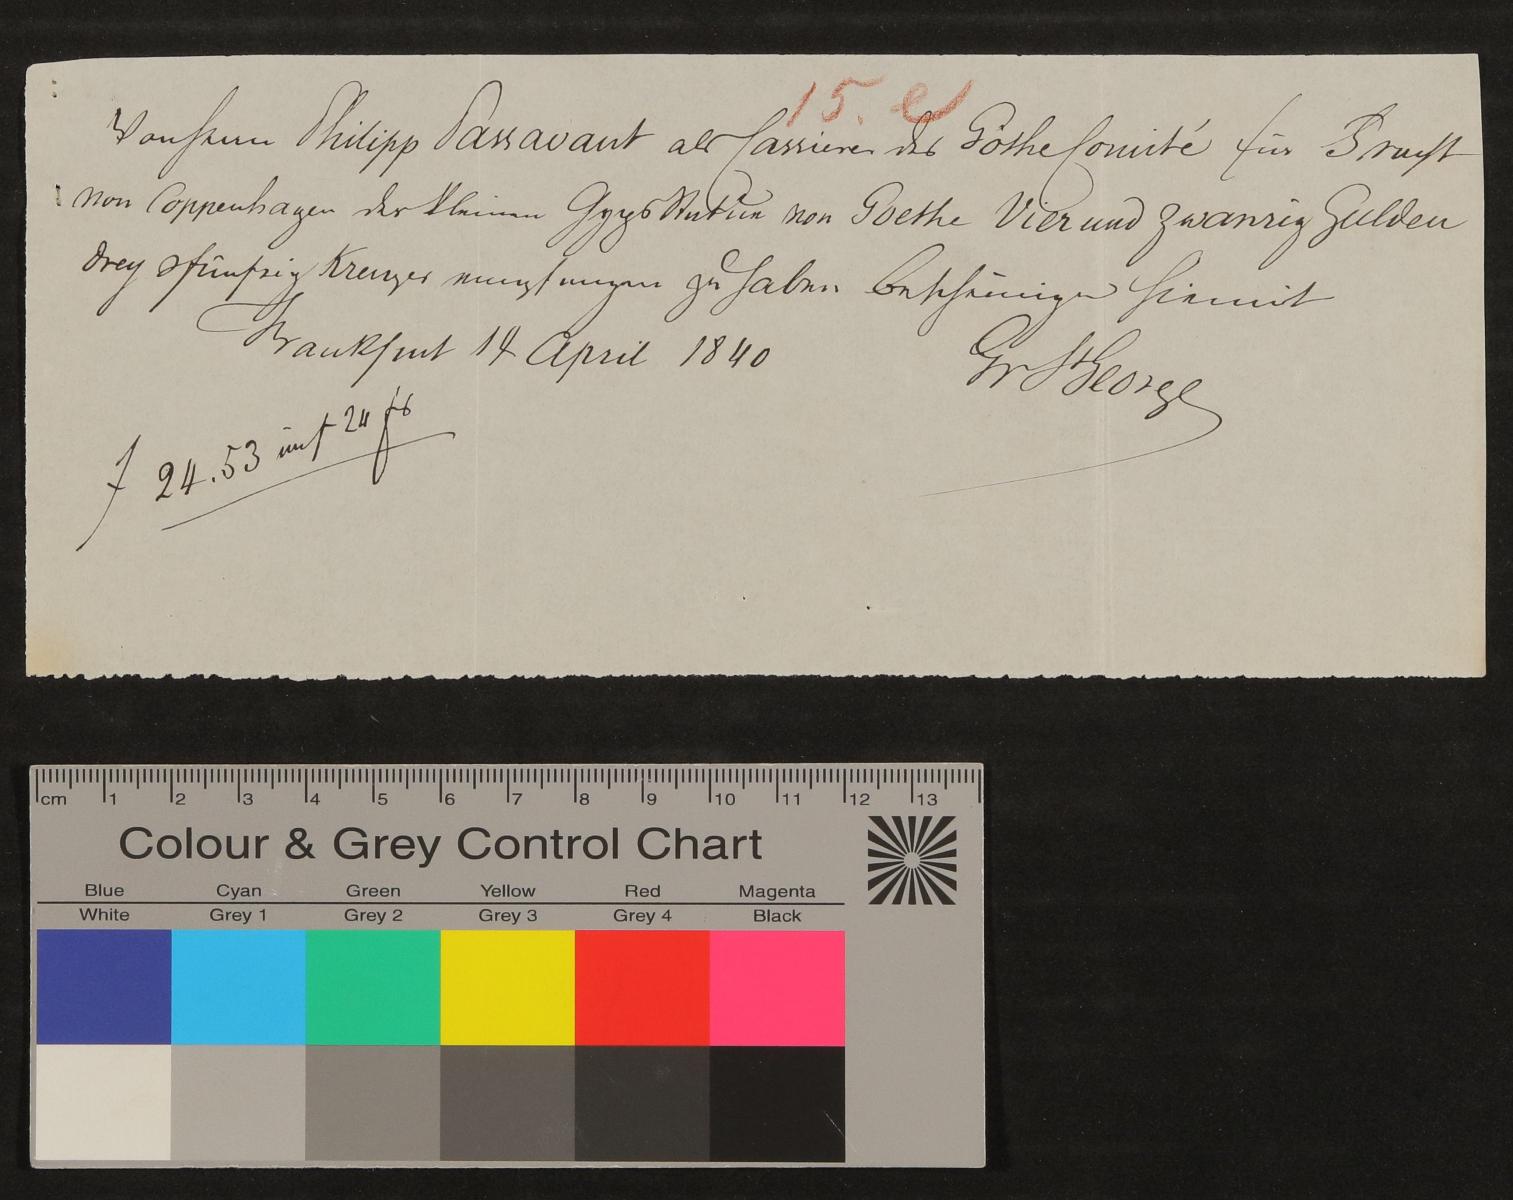 15. e
Von Herrn Philipp Passavant als Cassierer des Göthe Comité für Fracht
von Coppenhagen der kleinen Gyps Statue von Goethe Vier und zwanzig Gulden
drey & fünfzig Kreuzer empfangen zu haben bescheinige hiemit
Frankfurt 14 April 1840
Gr St George
f 24.53 im f 24 fs
cm 1 2 3 4 5 6 7 8 9 10 11 12 13
Colour & Grey Control Chart
Blue Cyan Green Yellow Red Magenta
White Grey 1 Grey 2 Grey 3 Grey 4 Black